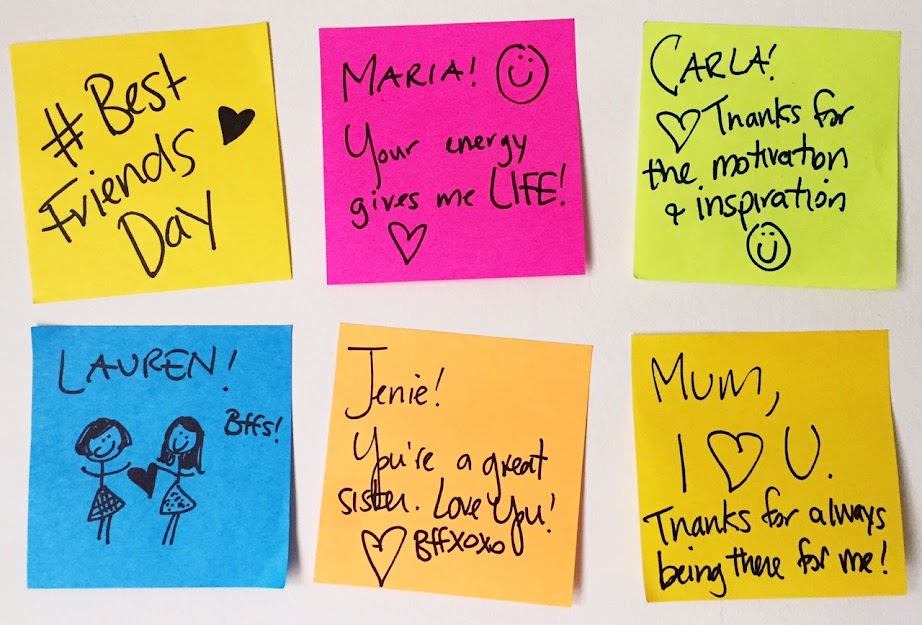 #Best
Friends
Day
MARIA!
Your energy
gives me LIFE!
CARLA!
Thanks for
the motivation
& inspiration
LAUREN!
Bffs!
Jenie!
You're a great
sister. Love You!
Bffxoxo
Mum,
I ♡ U.
Thanks for always
being there for me!